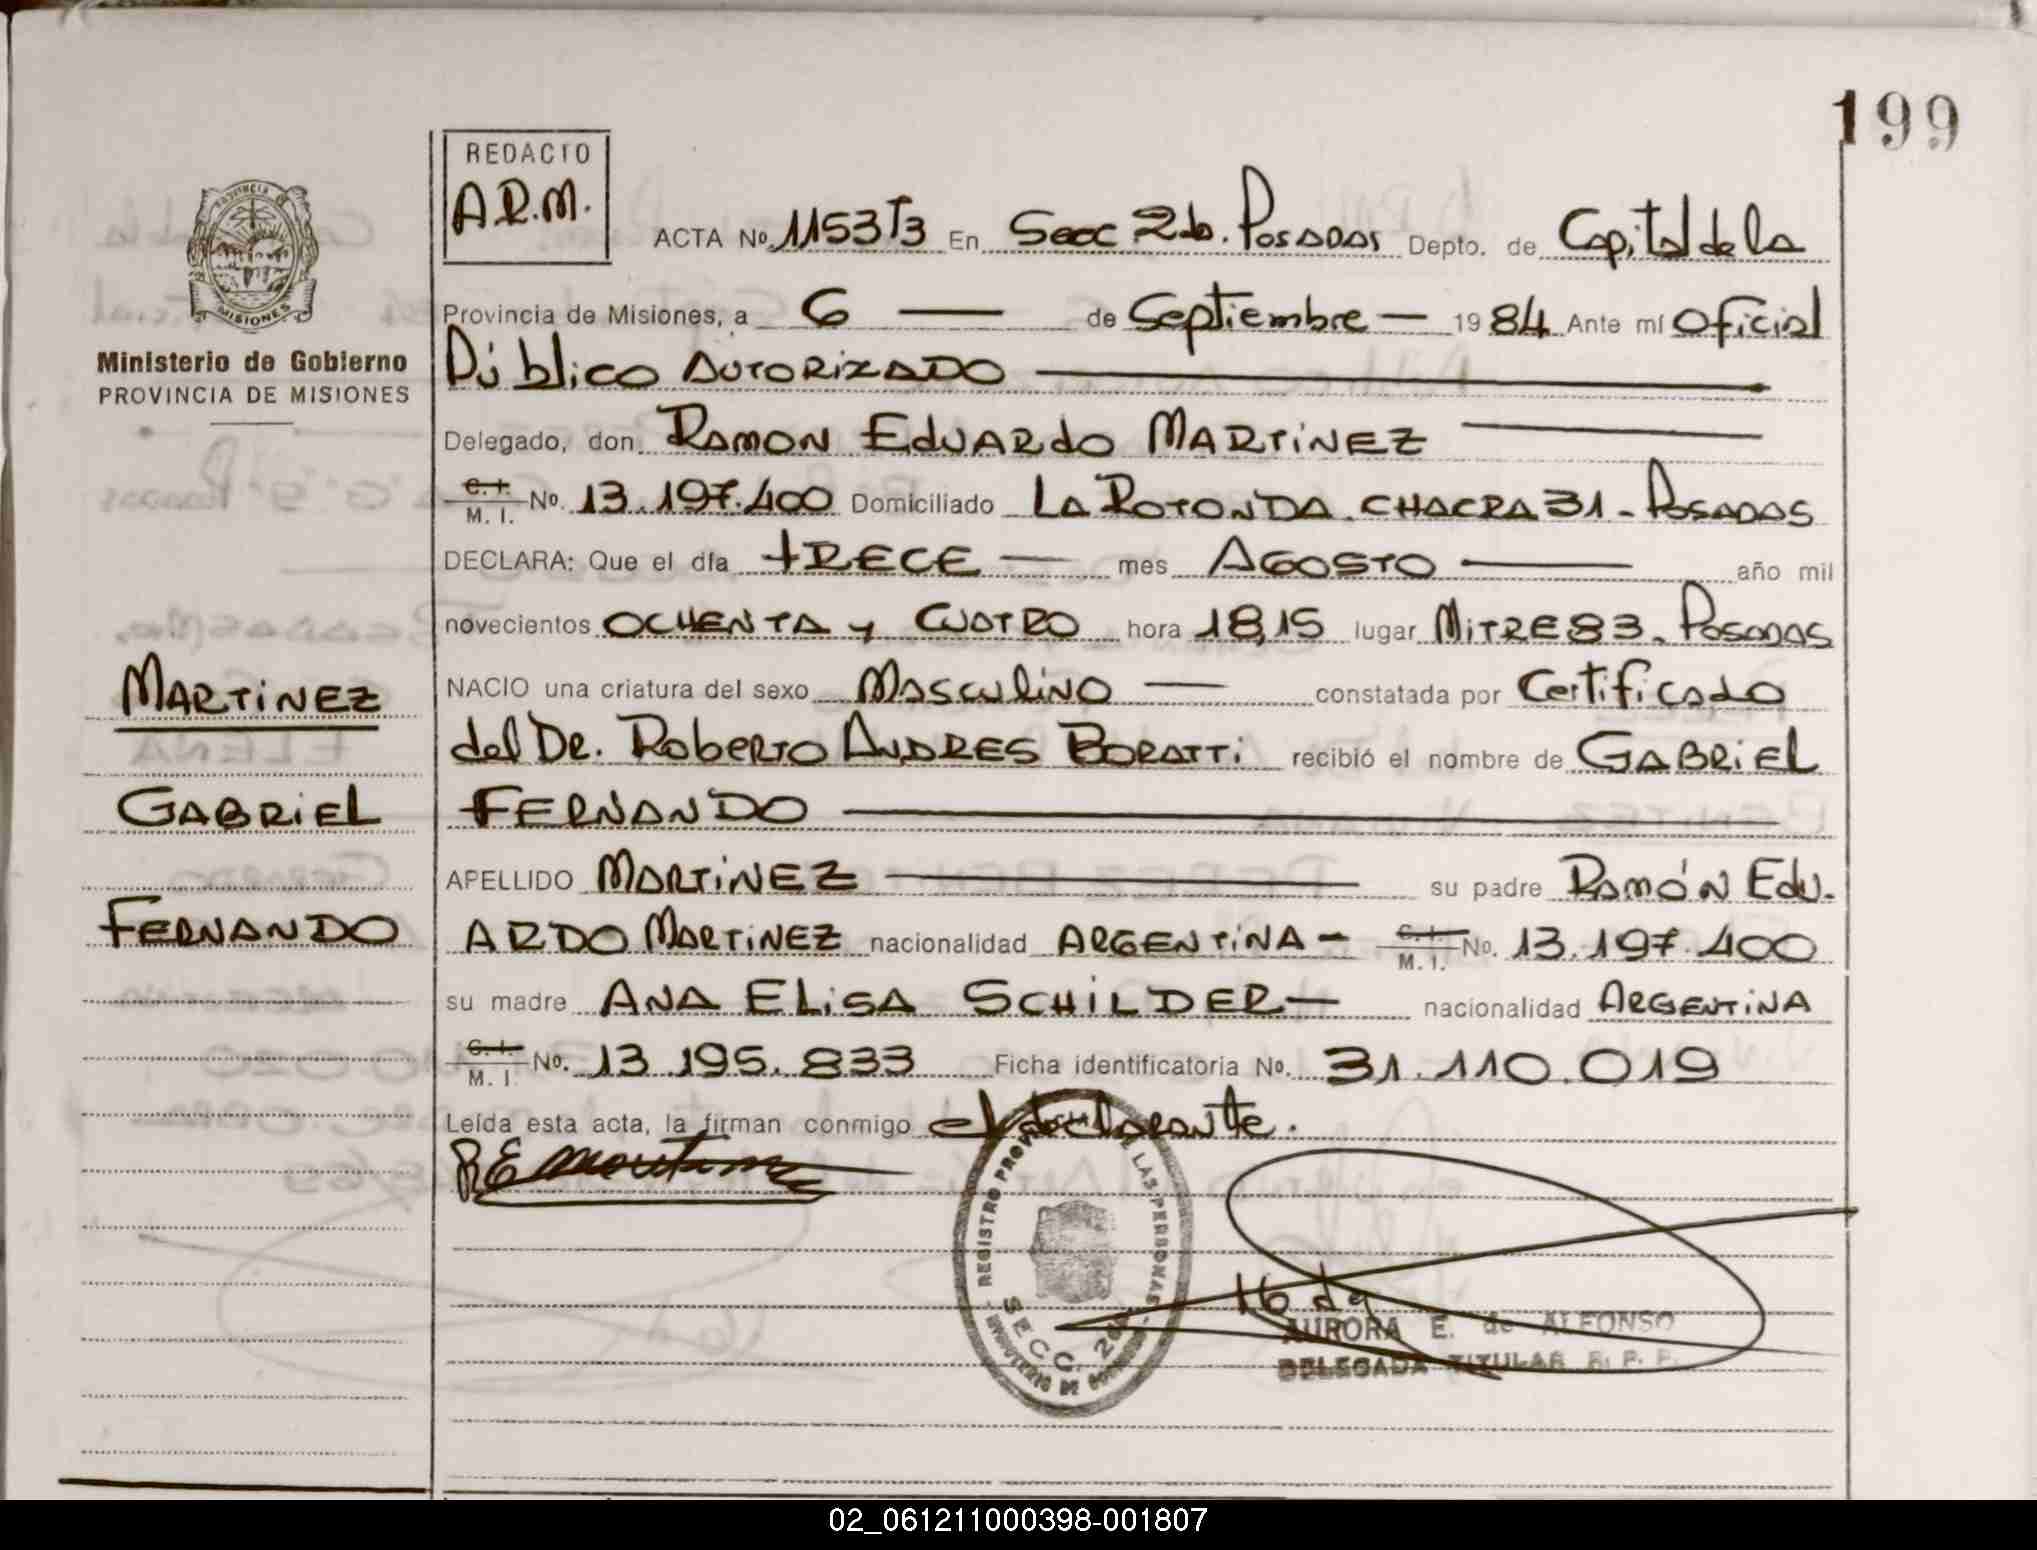 199
REDACTO
A.R.M.
PROVINCIA DE
MISIONES
Ministerio de Gobierno
PROVINCIA DE MISIONES
ACTA Nº 1153T3 En Secc 2da. POSADAS Depto. de Capital de la
Provincia de Misiones, a 6 — de Septiembre — 1984 Ante mí Oficial
Público AUTORIZADO —
Delegado, don RAMON EDUARDO MARTINEZ —
C. I. M. I. Nº. 13.197.400 Domiciliado LA ROTONDA. CHACRA 31 - POSADAS
DECLARA: Que el día TRECE — mes AGOSTO — año mil
novecientos OCHENTA y CUATRO hora 18,15 lugar MITRE 83. POSADAS
NACIO una criatura del sexo MASCULINO — constatada por Certificado
del DR. ROBERTO ANDRES BORATTI recibió el nombre de GABRIEL
FERNANDO —
APELLIDO MARTINEZ — su padre RAMÓN EDU-
ARDO MARTINEZ nacionalidad ARGENTINA - C. I. M. I. Nº. 13.197.400
su madre ANA ELISA SCHILDER — nacionalidad ARGENTINA
C. I. M. I. Nº. 13.195.833 Ficha identificatoria Nº. 31.110.019
Leída esta acta, la firman conmigo el declarante.
MARTINEZ
GABRIEL
FERNANDO
REGISTRO LAS PERSONAS
SECC. 2da
AURORA E. de ALFONSO
DELEGADA TITULAR R. P. P.
02_061211000398-001807